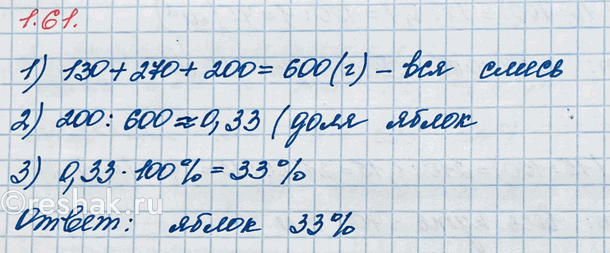 1.61.
1) 130 + 270 + 200 = 600 (г) – вся смесь
2) 200 : 600 ≈ 0,33 (доля яблок
3) 0,33 · 100% = 33%
Ответ: яблок 33%
Reshak.ru